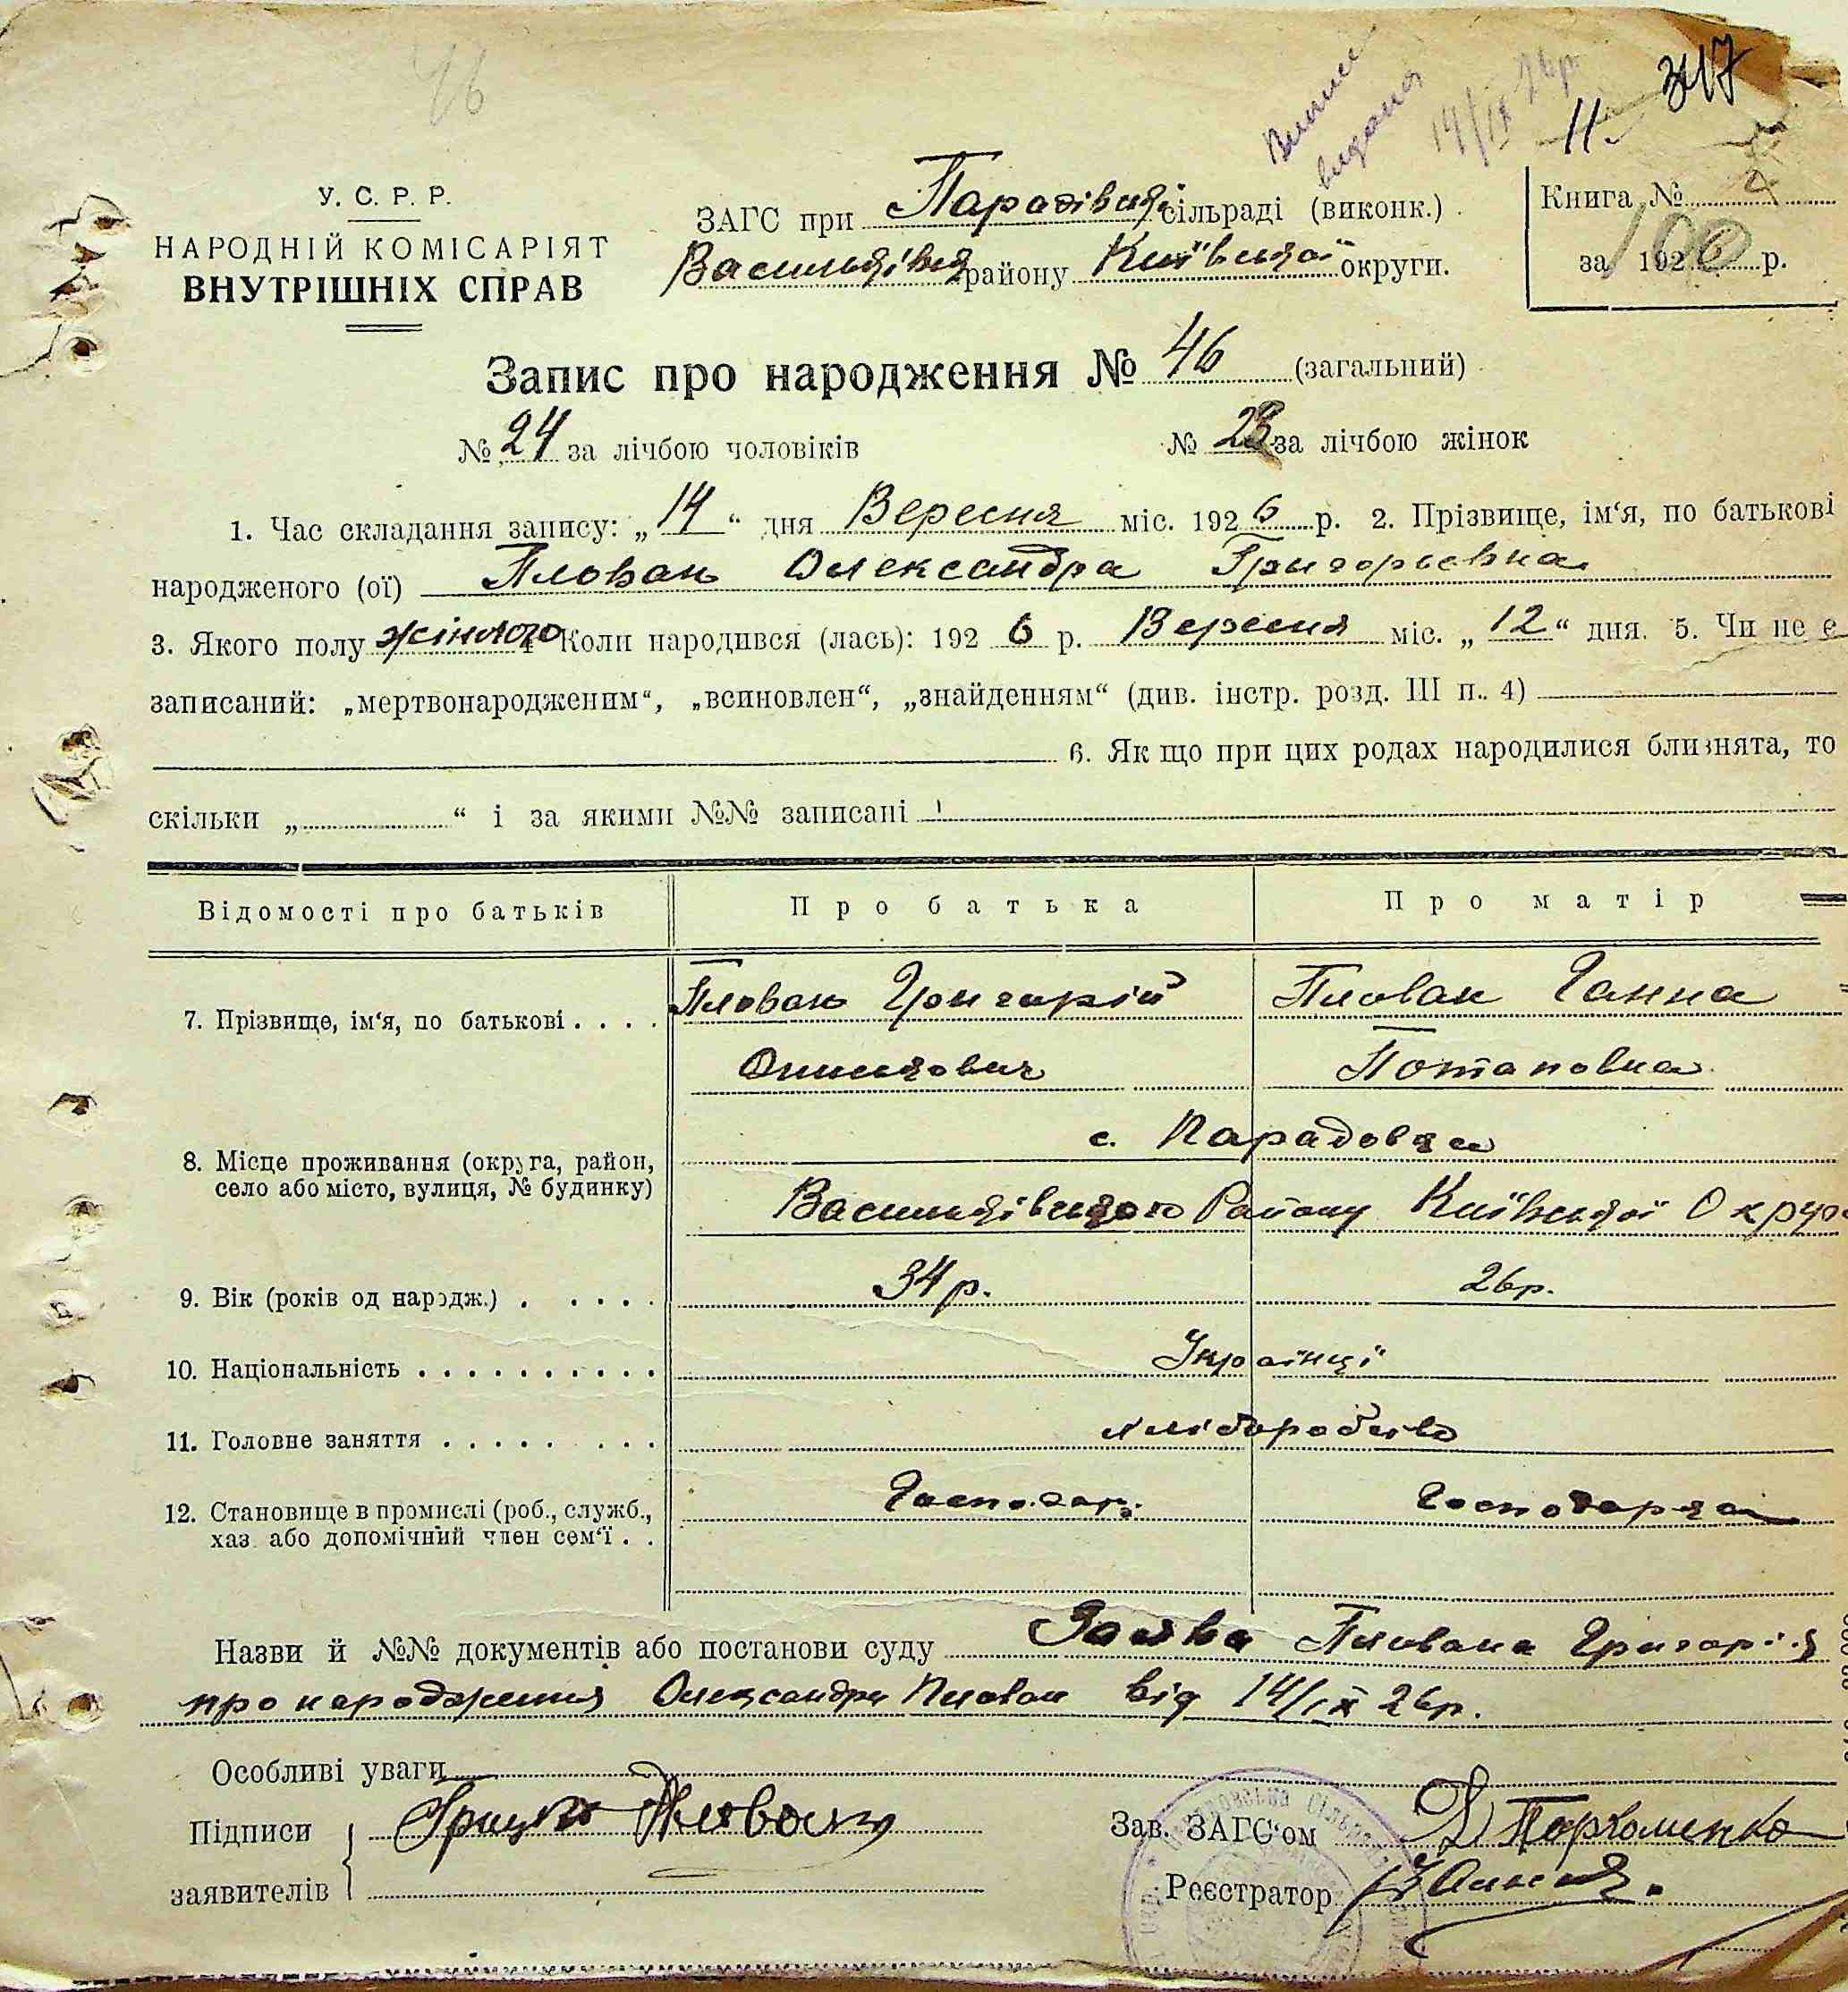 46
Випис
видана
14/IX 26р.
11.
317
У. С. Р. Р.
НАРОДНІЙ КОМІСАРІЯТ
ВНУТРІШНІХ СПРАВ
ЗАГС при сільраді (виконк.)
району Київської округи.
Книга №
за 1926 р.
Запис про народження № 46 (загальний)
№ 24 за лічбою чоловіків № 23 за лічбою жінок
1. Час складання запису: „14“ дня Вересня міс. 1926 р. 2. Прізвище, ім‘я, по батькові
народженого (ої) Плован Олександра Григорьевна
3. Якого полу жіночого 4. Коли народився (лась): 1926 р. Вересня міс. „12“ дня. 5. Чи не є
записаний: „мертвонародженим“, „всиновлен“, „знайденням“ (див. інстр. розд. III п. 4)
6. Як що при цих родах народилися близнята, то
скільки „ “ і за якими №№ записані
Відомості про батьків Про батька Про матір
7. Прізвище, ім‘я, по батькові . . . . Плован Григорій Плован Ганна
Потаповна
с.
8. Місце проживання (округа, район,
село або місто, вулиця, № будинку)
Васильківського Району Київської Округ
9. Вік (років од народж.) . . . . . 34 р. 26 р.
10. Національність . . . . . . . . . . Українці
11. Головне заняття . . . . . . . . хліборобство
12. Становище в промислі (роб., служб., Господар. Господарка
хаз. або допомічний член сем‘ї . .
Назви й №№ документів або постанови суду Заява Плована Григорія
про народження Олександри Плован від 14/IX 26р.
Особливі уваги
Підписи Грицько Плован Зав. ЗАГС‘ом Пархоменко
заявителів Реєстратор